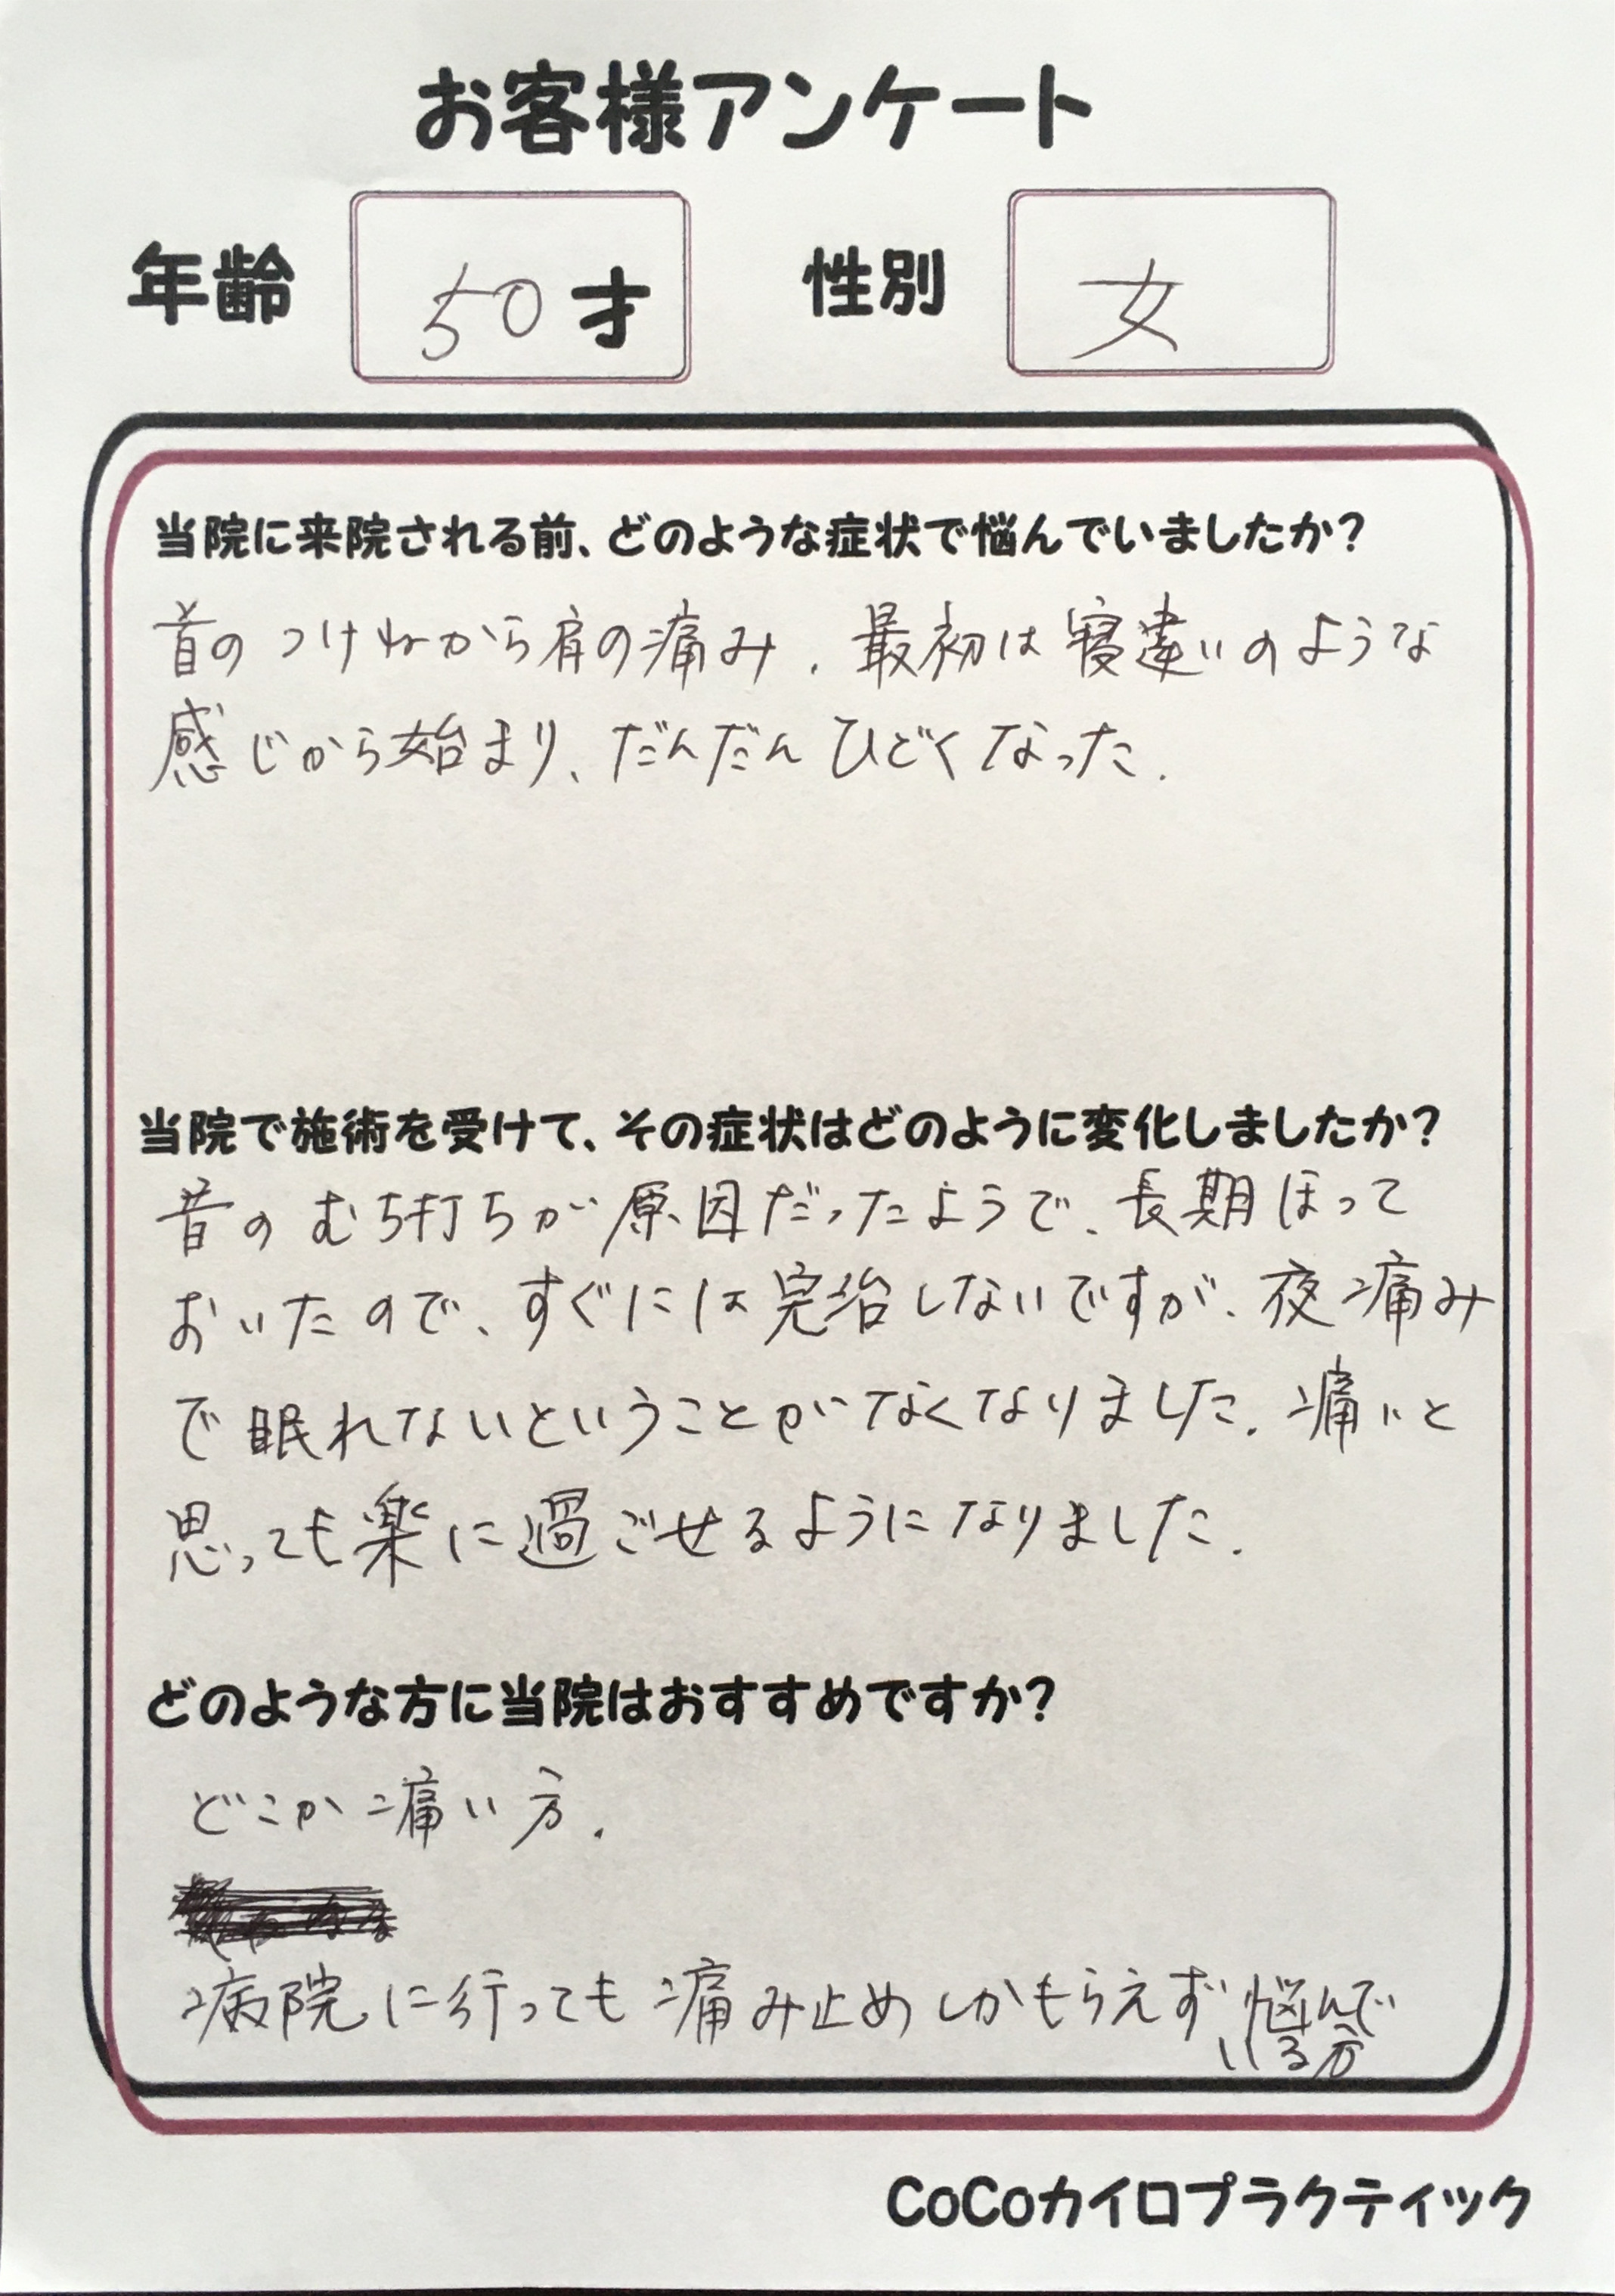 お客様アンケート
年齢 50才 性別 女
当院に来院される前、どのような症状で悩んでいましたか?
首のつけねから肩の痛み.最初は寝違いのような
感じから始まり、だんだんひどくなった.
当院で施術を受けて、その症状はどのように変化しましたか?
昔のむち打ちが原因だったようで、長期ほって
おいたので、すぐには完治しないですが、夜痛み
で眠れないということがなくなりました.痛いと
思っても楽に過ごせるようになりました.
どのような方に当院はおすすめですか?
どこか痛い方.
病院に行っても痛み止めしかもらえず、悩んで
いる方
CoCoカイロプラクティック